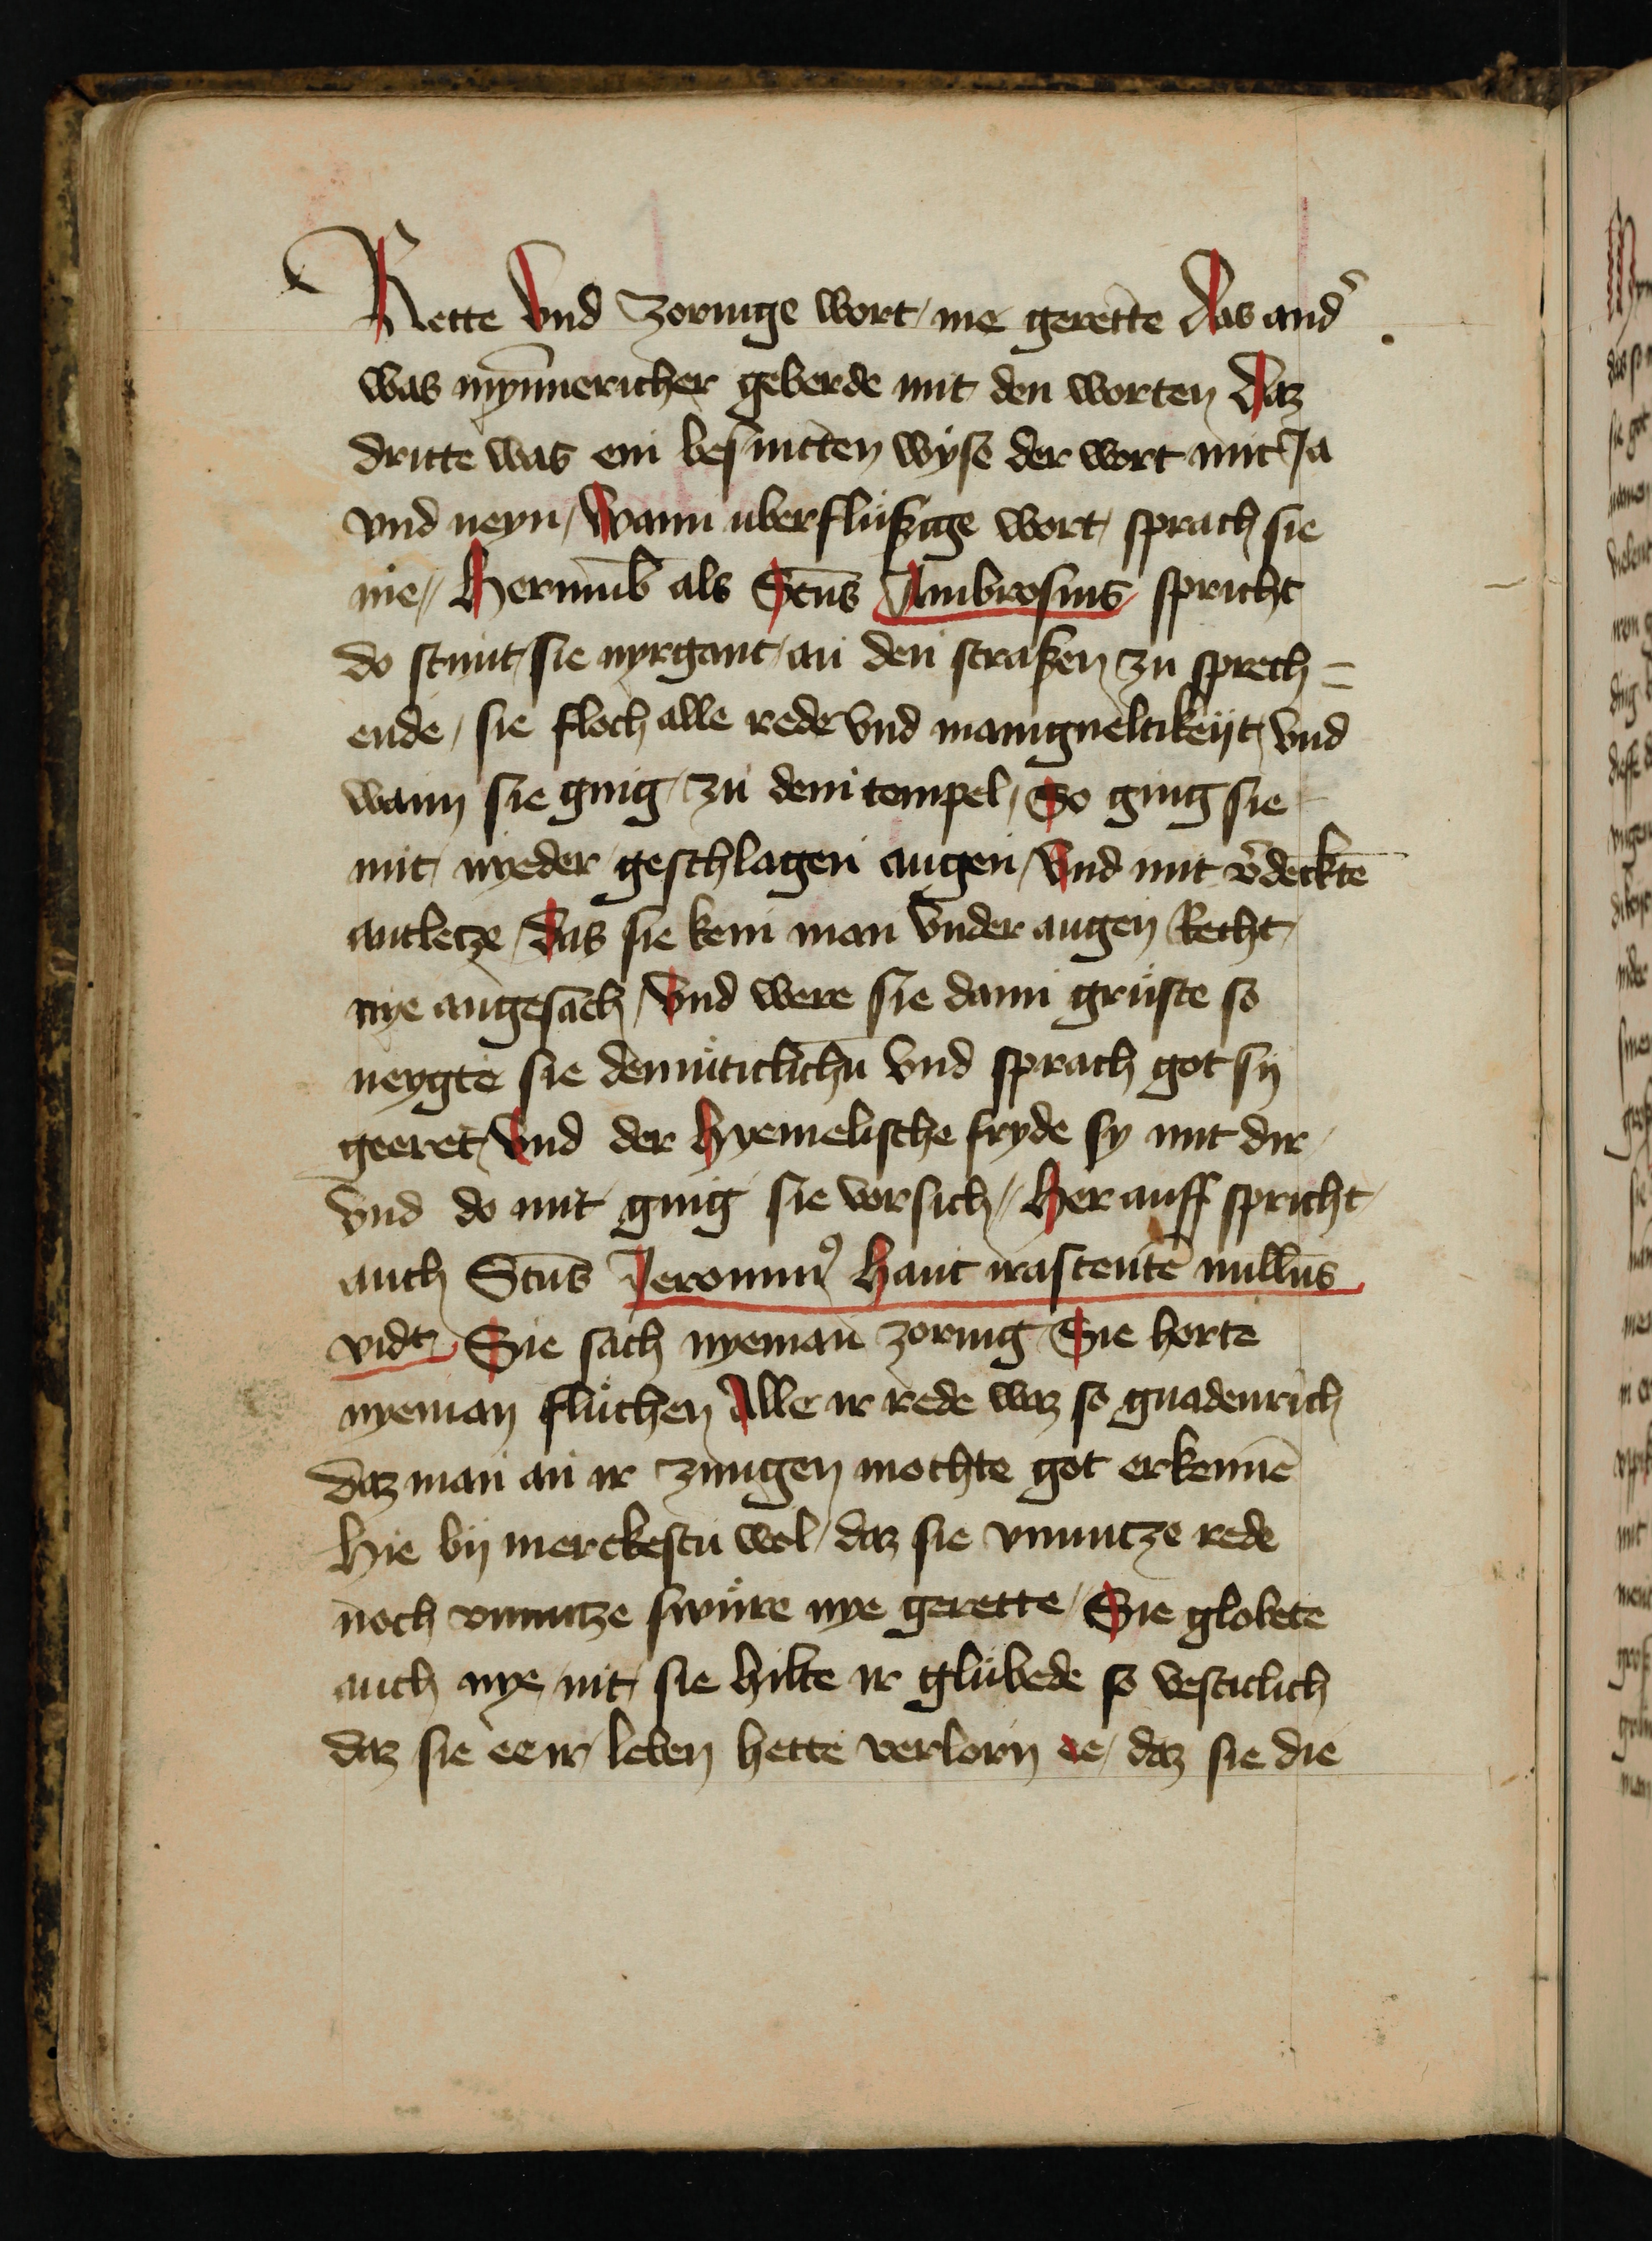 Rette Vnd Zornige wort / nie gerette Das and᷑
was mỹnnericher geberde mit den worten Daz
dritte was ein besnitten wyse der wort mit Ja
vnd neyn / Wann uberflüßige wort / sprach sie
nie // Herumb als Sctus Ambrosius spricht
do stunt / sie nyrgant / an den straßen zu sprech =
ende / sie floch alle rede Vnd manigueltikeijt / Vnd
wann sie ging / zu dem tempel / So ging sie
mit / nyeder geschlagen augen / Vnd mit v᷑decktē
antletze / Das sie kein man Vnder augen Recht /
nye angesach / Vnd were sie dann grüste so
neygte sie demüticlichn̄ Vnd sprach got sij
geeret / Vnd der Hyemelische fryde sy mit dir /
Vnd do mit ging sie vor sich // Her auff spricht /
auch Sctus Jeronim⁹ Hanc irascentē nullus
vidt / Sie sach nyeman zornig / Sie horte
nyeman flüchen Alle ir rede waz so gnadenrich
daz man an ir zungen mochte got erkennē
Hie bij merckestu wol / daz sie vnnutze rede
noch vnnutze swüre nye gerette / Sie globete
auch nye / nit / sie hilte ir glübede so vesticlich
daz sie ee ir / leben hette verlorn ee / daz sie die